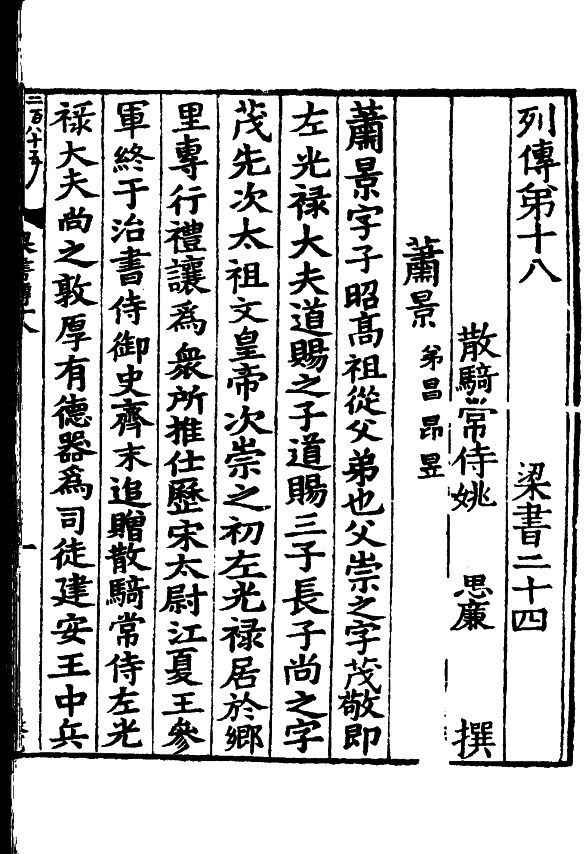 列傳第十八　梁書二十四
散騎常侍姚　思廉　撰
蕭景　弟昌昂昱
蕭景字子昭高祖從父弟也父崇之字茂敬即
左光禄大夫道賜之子道賜三子長子尚之字
茂先次太祖文皇帝次崇之初左光禄居於鄉
里專行禮讓爲衆所推仕歷宋太尉江夏王參
軍終于治書侍御史齊末追贈散騎常侍左光
禄大夫尚之敦厚有德器爲司徒建安王中兵
二百八十五